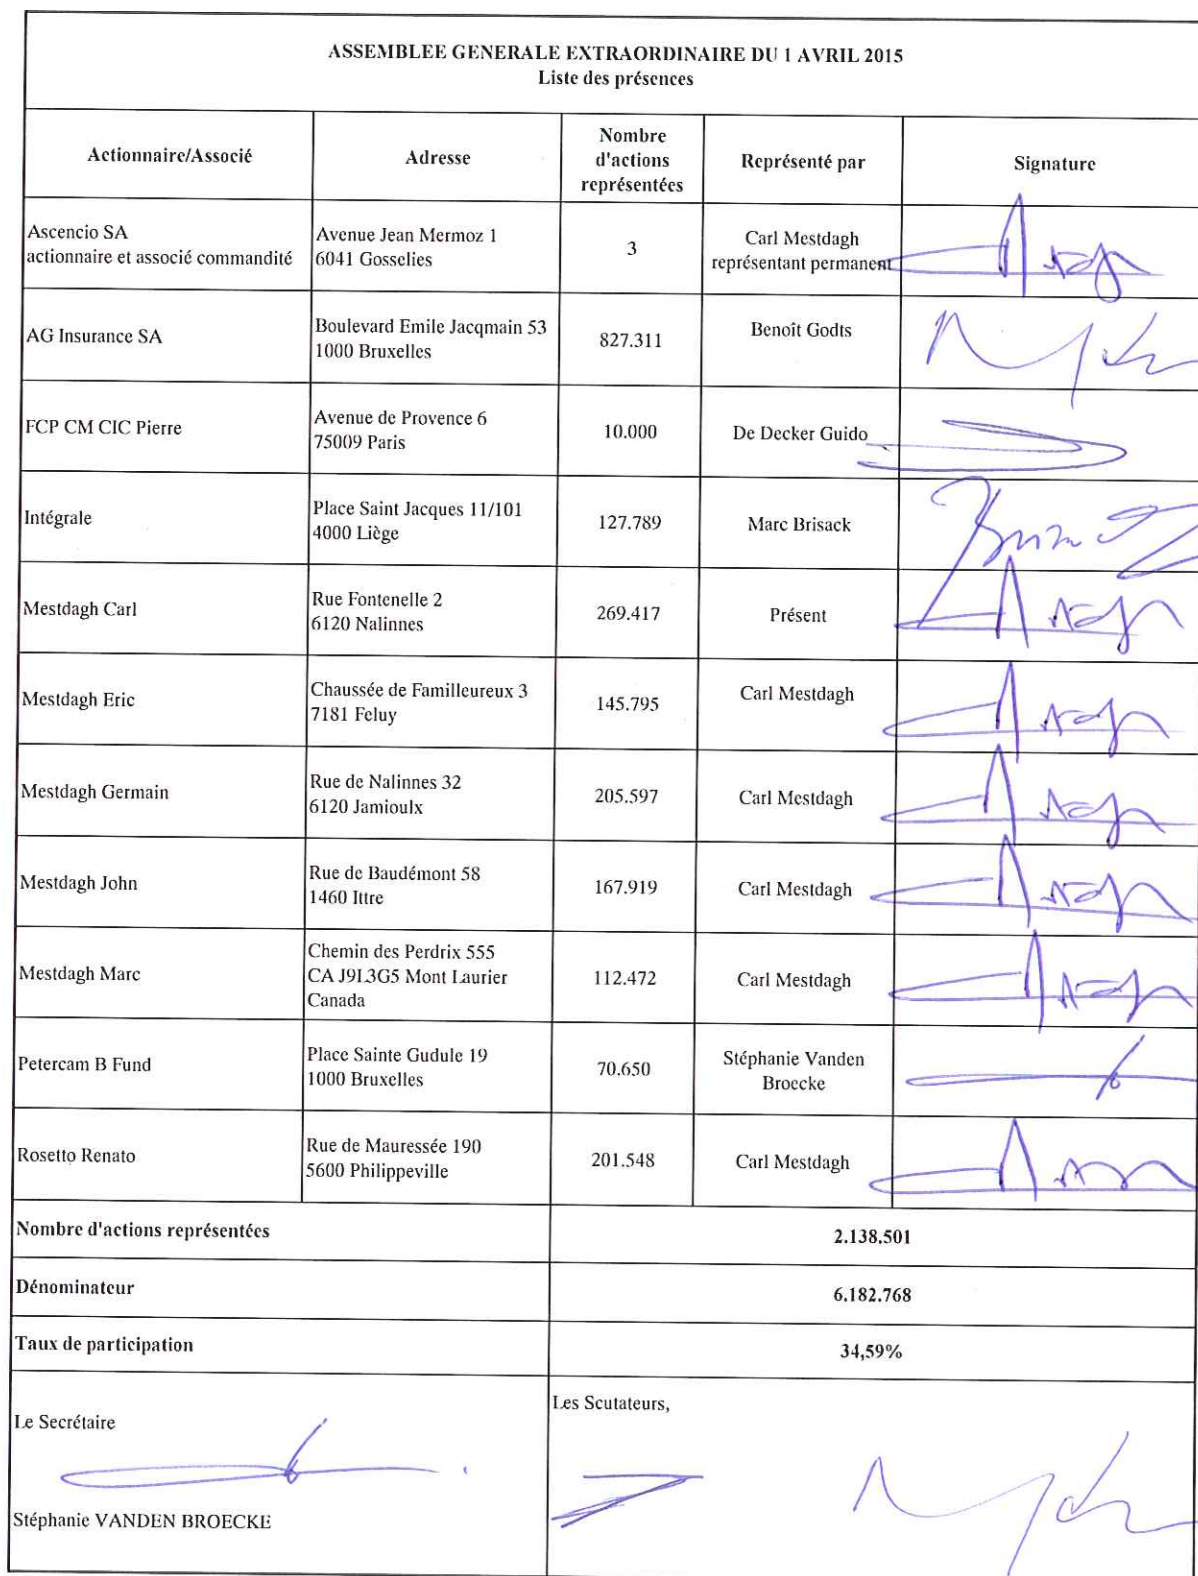 ASSEMBLEE GENERALE EXTRAORDINAIRE DU 1 AVRIL 2015
Liste des présences
Actionnaire/Associé
Adresse
Nombre
d'actions
représentées
Représenté par
Signature
Ascencio SA
actionnaire et associé commandité
Avenue Jean Mermoz 1
6041 Gosselies
3
Carl Mestdagh
représentant permanent
AG Insurance SA
Boulevard Emile Jacqmain 53
1000 Bruxelles
827.311
Benoît Godts
FCP CM CIC Pierre
Avenue de Provence 6
75009 Paris
10.000
De Decker Guido
Intégrale
Place Saint Jacques 11/101
4000 Liège
127.789
Marc Brisack
Mestdagh Carl
Rue Fontenelle 2
6120 Nalinnes
269.417
Présent
Mestdagh Eric
Chaussée de Familleureux 3
7181 Feluy
145.795
Carl Mestdagh
Mestdagh Germain
Rue de Nalinnes 32
6120 Jamioulx
205.597
Carl Mestdagh
Mestdagh John
Rue de Baudémont 58
1460 Ittre
167.919
Carl Mestdagh
Mestdagh Marc
Chemin des Perdrix 555
CA J9L3G5 Mont Laurier
Canada
112.472
Carl Mestdagh
Petercam B Fund
Place Sainte Gudule 19
1000 Bruxelles
70.650
Stéphanie Vanden
Broecke
Rosetto Renato
Rue de Mauressée 190
5600 Philippeville
201.548
Carl Mestdagh
Nombre d'actions représentées
2.138.501
Dénominateur
6.182.768
Taux de participation
34,59%
Le Secrétaire
Les Scutateurs,
Stéphanie VANDEN BROECKE